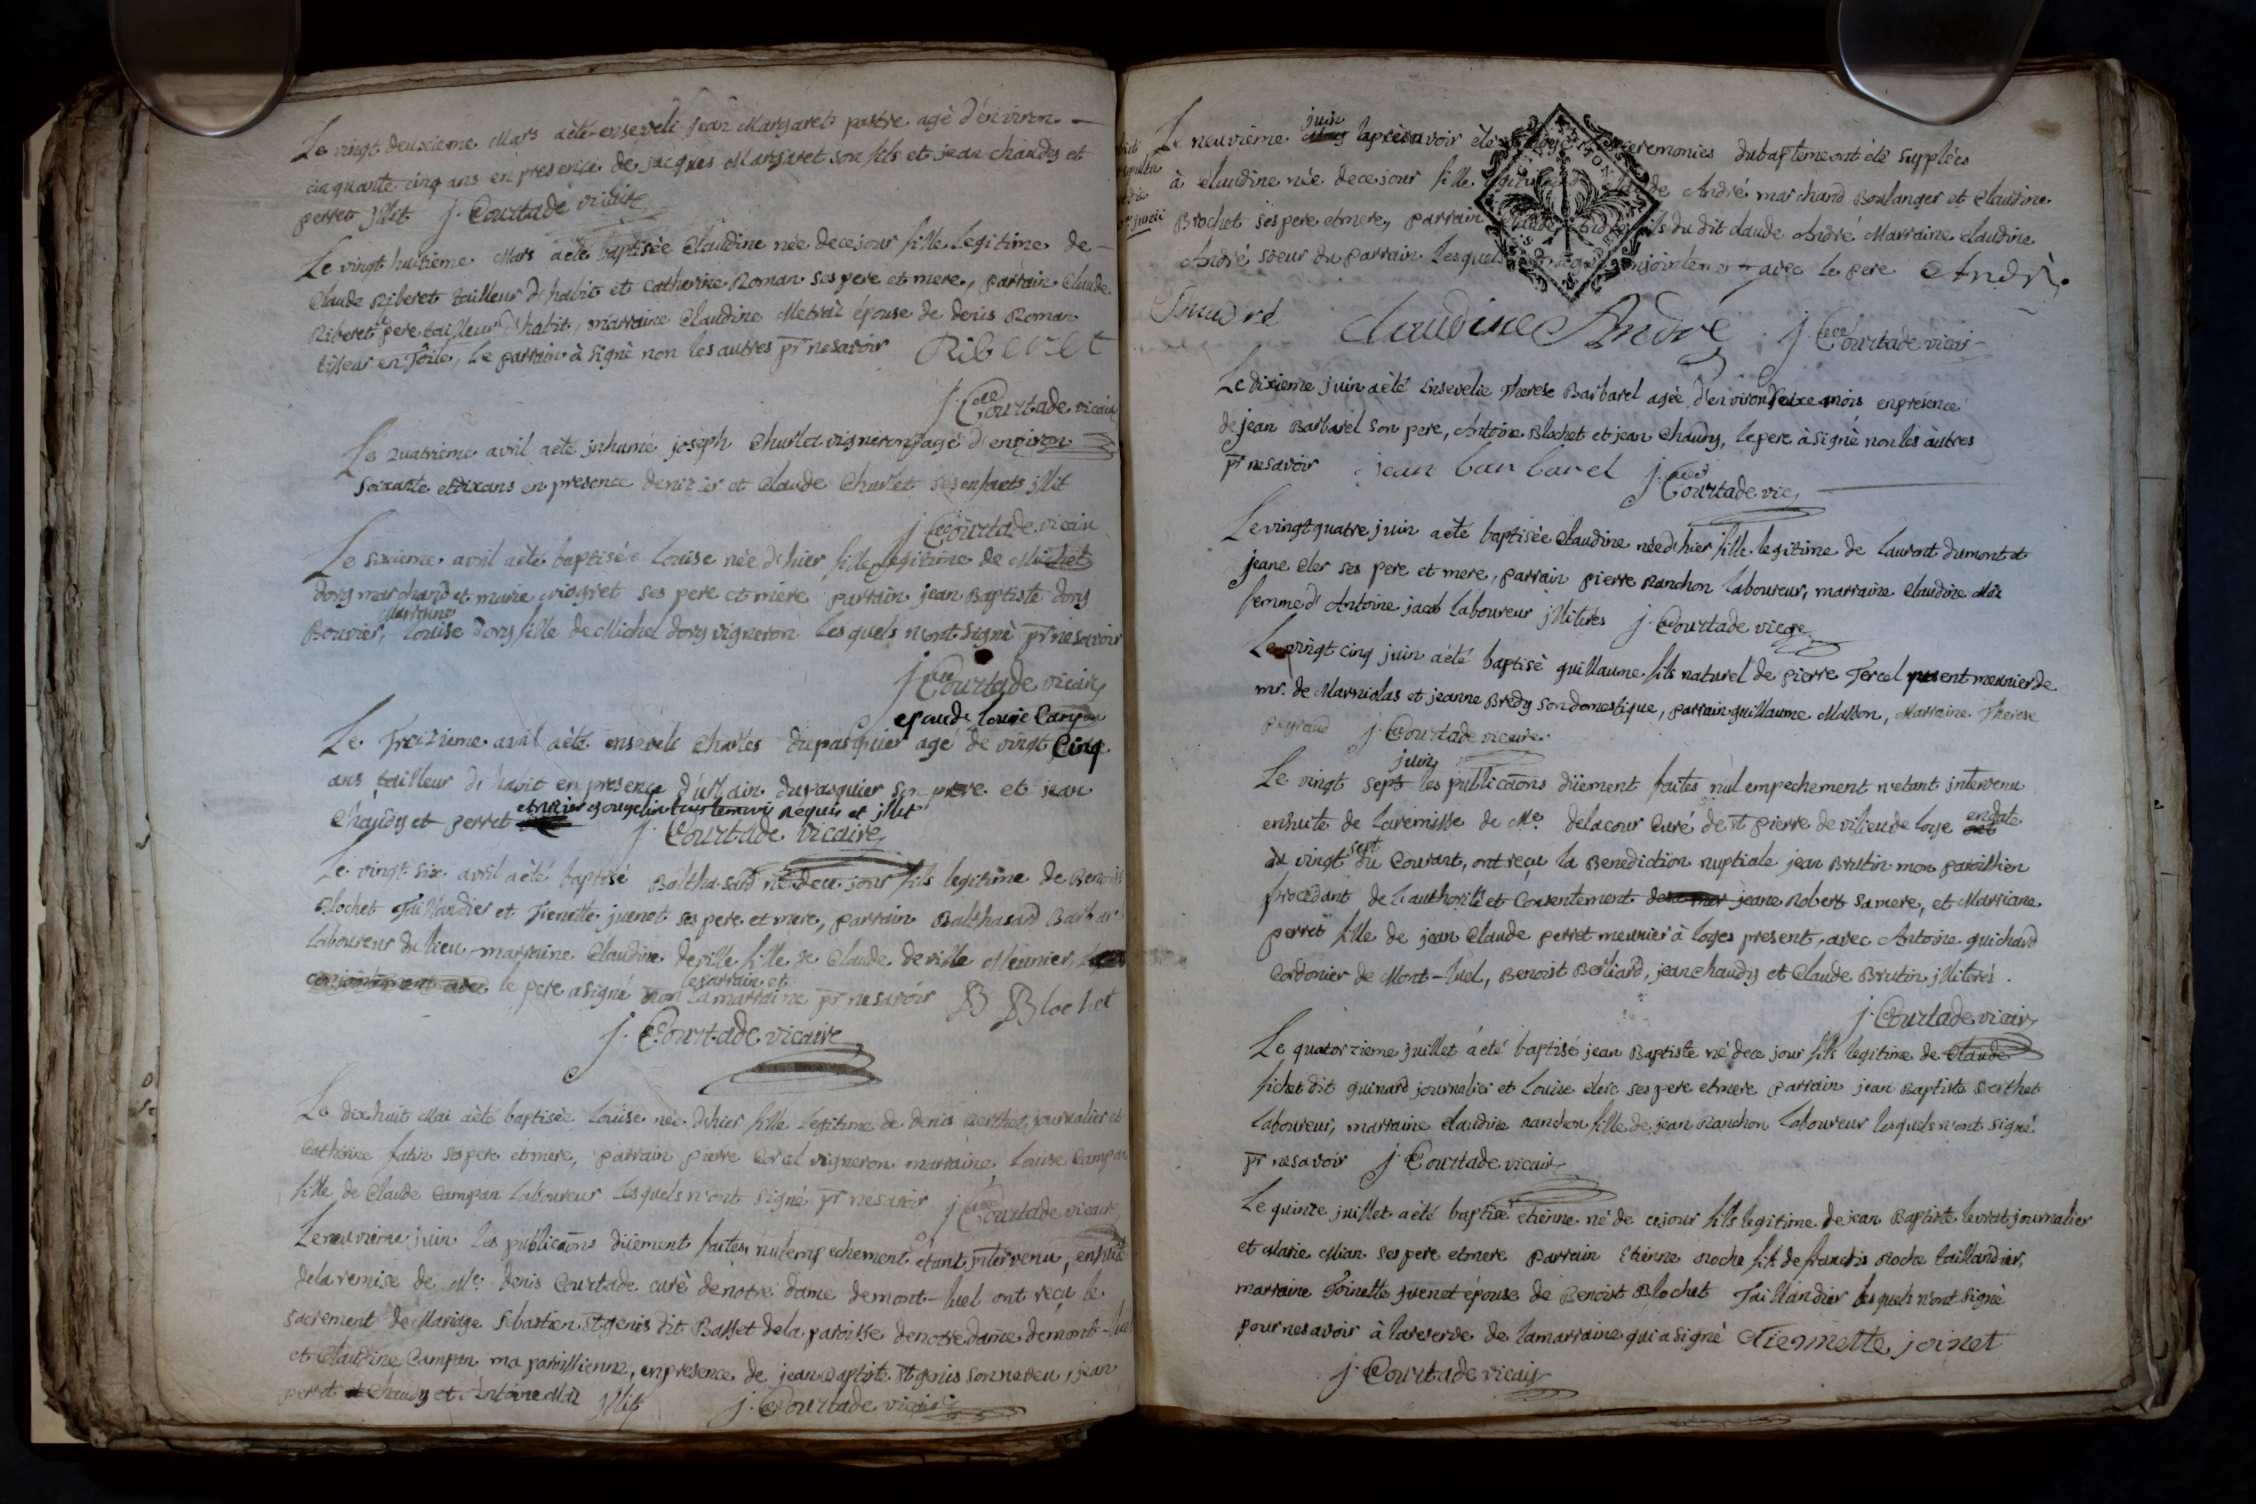 Le vingt deuxieme Mars aété enseveli jean Margaret patre agé d'environ
cinquante cinq ans en presence de jacques Margaret son fils et jean chaudy et
perret jllit j. Courtade vicaire
Le vingt huitieme Mars aété baptisée Claudine née de ce jour fille legitime de
Claude Riberet tailleur d'habit et Catherine Roman ses pere et mere, parrain Claude
Riberet le pere tailleur d'habit, marraine Claudine Metral épouse de denis Roman
tisseur en Toile, le parrain à signé non les autres pr nesavoir Riberet
j. Courtade vicaire
Le quatrieme avril aété jnhumé joseph Churlet vigneron agé d'environ
soixante et dix ans en presence denizier et Claude Churlet ses enfants jllit
j. Courtade vicaire
Le sixieme avril aété baptisée Louise née d'hier fille legitime de Michel
dory marchand et marie ses pere et mere parrain jean Baptiste dory
Bouvier, Marraine Louise dory fille de Michel dory vigneron lesquels n'ont signé pr nesavoir
j. Courtade vicaire
Le Treizieme avril aété enseveli Charles dupasquier agé de vingt cinq
ans tailleur d'habit en presence dupasquier son pere et jean
chaudy et perret requis et jllit
j. Courtade vicaire
Le vingt six avril aété baptisé Balthasard né de ce jour fils legitime de Benoist
Blochet Taillandier et Tienette juenet ses pere et mere, parrain Balthasard
laboureur du lieu, marraine Claudine deville fille de Claude deville Meunier,
conjointement avec le pere asigné non le parrain et la marraine pr nesavoir B Blochet
j. Courtade vicaire
Le dixhuit Mai aété baptisée Louise née d'hier fille legitime de denis Berthet journalier et
Catherine ses pere et mere, parrain pierre vigneron marraine Louise Campan
fille de Claude Campan laboureur lesquels n'ont signé pr nesavoir j. Courtade vicaire
Le neuvieme juin les publicaõns düement faites, nul empechement étant jntervenu, ensuite
dela remise de Me. denis Courtade curé denotre dame demont-luel ont reçu le
sacrement de Mariage Sebastien St genis dit Basset dela paroisse denotre dame demont-luel
et Claudine Campan ma paroissienne, enpresence de jean Baptiste St genis sonneveu, jean
perret et Chaudy et Antoine jllit j. Courtade vicaire
Le neuvieme juin apresavoir été les ceremonies dubapteme ont été supplées
à Claudine née dece jour fille de André marchand Boulanger et Claudine
Brochet ses pere etmere, parrain fils du dit claude André Marraine Claudine
André soeur du parrain lesquels conjointement avec le pere André
André Claudine André j. Courtade vicaire
Le dixieme juin aété Ensevelie Therese Barbarel agée d'environ mois enpresence
de jean Barbarel son pere, Antoine Blochet et jean Chaudy, le pere à signé non les àutres
pr nesavoir jean barbarel j. Courtade vic
Le vingt quatre juin aété baptisée Claudine née d'hier fille legitime de laurent dumont et
jeane Cler ses pere et mere, parrain pierre Ranchon laboureur, marraine Claudine
femme d'Antoine jacob laboureur jlliterés j. Courtade
Le vingt cinq juin aété baptisé guillaume fils naturel de pierre Tercel meunier de
mr. de Marniolas et jeanne Bredy son domestique, parrain guillaume Masson, Marraine Therese
peyraud j. Courtade vicaire
Le vingt sept juin les publicaõns düement faites nul empechement n'etant jntervenu
ensuite de laremisse de Me. delacour Curé de St pierre devilieu de loye endate
du vingt sept du Courant, ont reçu la Benediction nuptiale jean Brutin mon paroissien
procedant de l'authorité et Consentement jeane Robert samere, et Marriane
perret fille de jean Claude perret meunier à loyes present, avec Antoine guichard
Cordonier de Mont-luel, Benoist Berliard, jean chaudy et Claude Brutin jlliterés.
j. Courtade vicaire
Le quatorzieme juillet aété baptisé jean Baptiste né dece jour fils legitime de Claude
fichet dit guinard journalier et Louise cler ses pere etmere parrain jean Baptiste Berthet
laboureur, marraine claudine ranchon fille de jean Ranchon laboureur lesquels n'ont signé
pr nesavoir j. Courtade vicaire
Le quinze juillet aété baptisé etienne né de cejour fils legitime de jean Baptiste levrat journalier
et Marie Mian ses pere etmere parrain Etienne Roche fils de francois Roche taillandier,
marraine Toinette juenet épouse de Benoist Blochet Taillandier lesquels n'ont signé
pour nesavoir à lareserve de lamarraine qui a signé etiennette joinet
j. Courtade vicaire